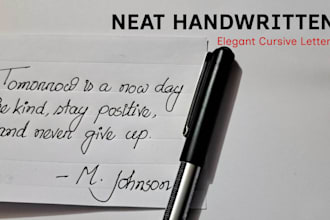 NEAT HANDWRITTEN
Elegant Cursive Letter
Tomorrow is a now day
be kind, stay positive,
and never give up.
- M. Johnson